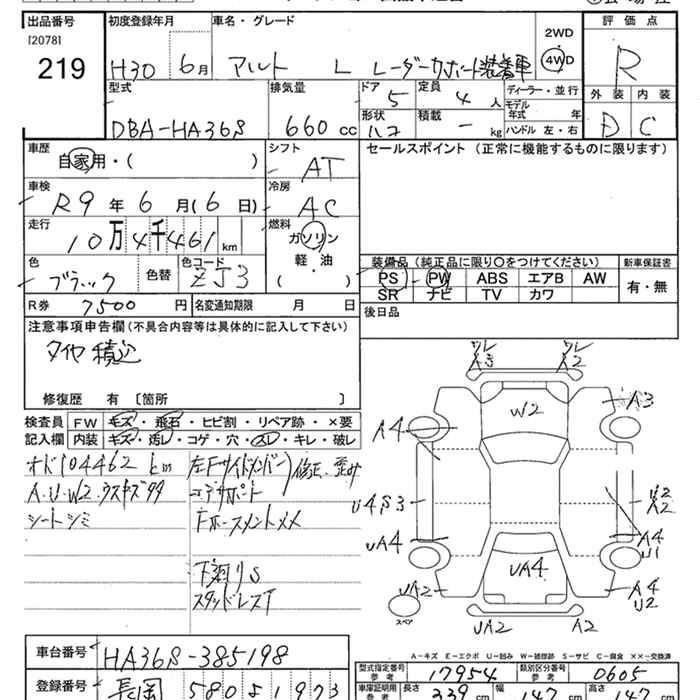 出品番号
[2078]
219
初度登録年月
H30 6月
車名・グレード
アルト L レーダーサポート装着車
2WD
4WD
評価点
R
外装 内装
D C
型式
DBA-HA36S
排気量
660 cc
ドア
5
定員
4 人
形状
ハコ
積載
- kg
ディーラー・並行
モデル
年式 年
ハンドル 左・右
車歴
自家用・( )
シフト
AT
車検
R9年6月(6日)
冷房
AC
走行
10万4千461km
燃料
ガソリン
軽・油
( )
色
ブラック
色替
色コード
ZJ3
R券 7500円
名変通知期限 月 日
セールスポイント (正常に機能するものに限ります)
装備品 (純正品に限り○をつけてください)
PS PW ABS エアB AW
SR ナビ TV カワ
新車保証書
有・無
後日品
注意事項申告欄(不具合内容等は具体的に記入して下さい)
タイヤ積込
修復歴 有 〔箇所 〕
検査員
記入欄
FW キズ・飛石・ヒビ割・リペア跡・×要
内装 キズ・汚レ・コゲ・穴・スレ・キレ・破レ
オド104462km
A・U・W2・ウスキズ多々
シートシミ
左Fサイドメンバー
コアサポート
修正、歪み
Fホースメントメメ
下廻りS
スタッドレスT
ワレ
A3
ワレ
A2
W2
A3
A4
U4S3
U2
A2
UA4
A4
U1
UA4
UA2
A4
U2
スペア
UA2
A2
A-キズ E-エクボ U-凹み W-補修跡 S-サビ C-腐食 ××-交換済
車台番号
HA36S-385198
登録番号
長岡 580 う 1973
型式指定番号
参考
17954
類別区分番号
参考
0605
車庫証明用
参考
長さ 339 cm
幅 147 cm
高さ 147 cm